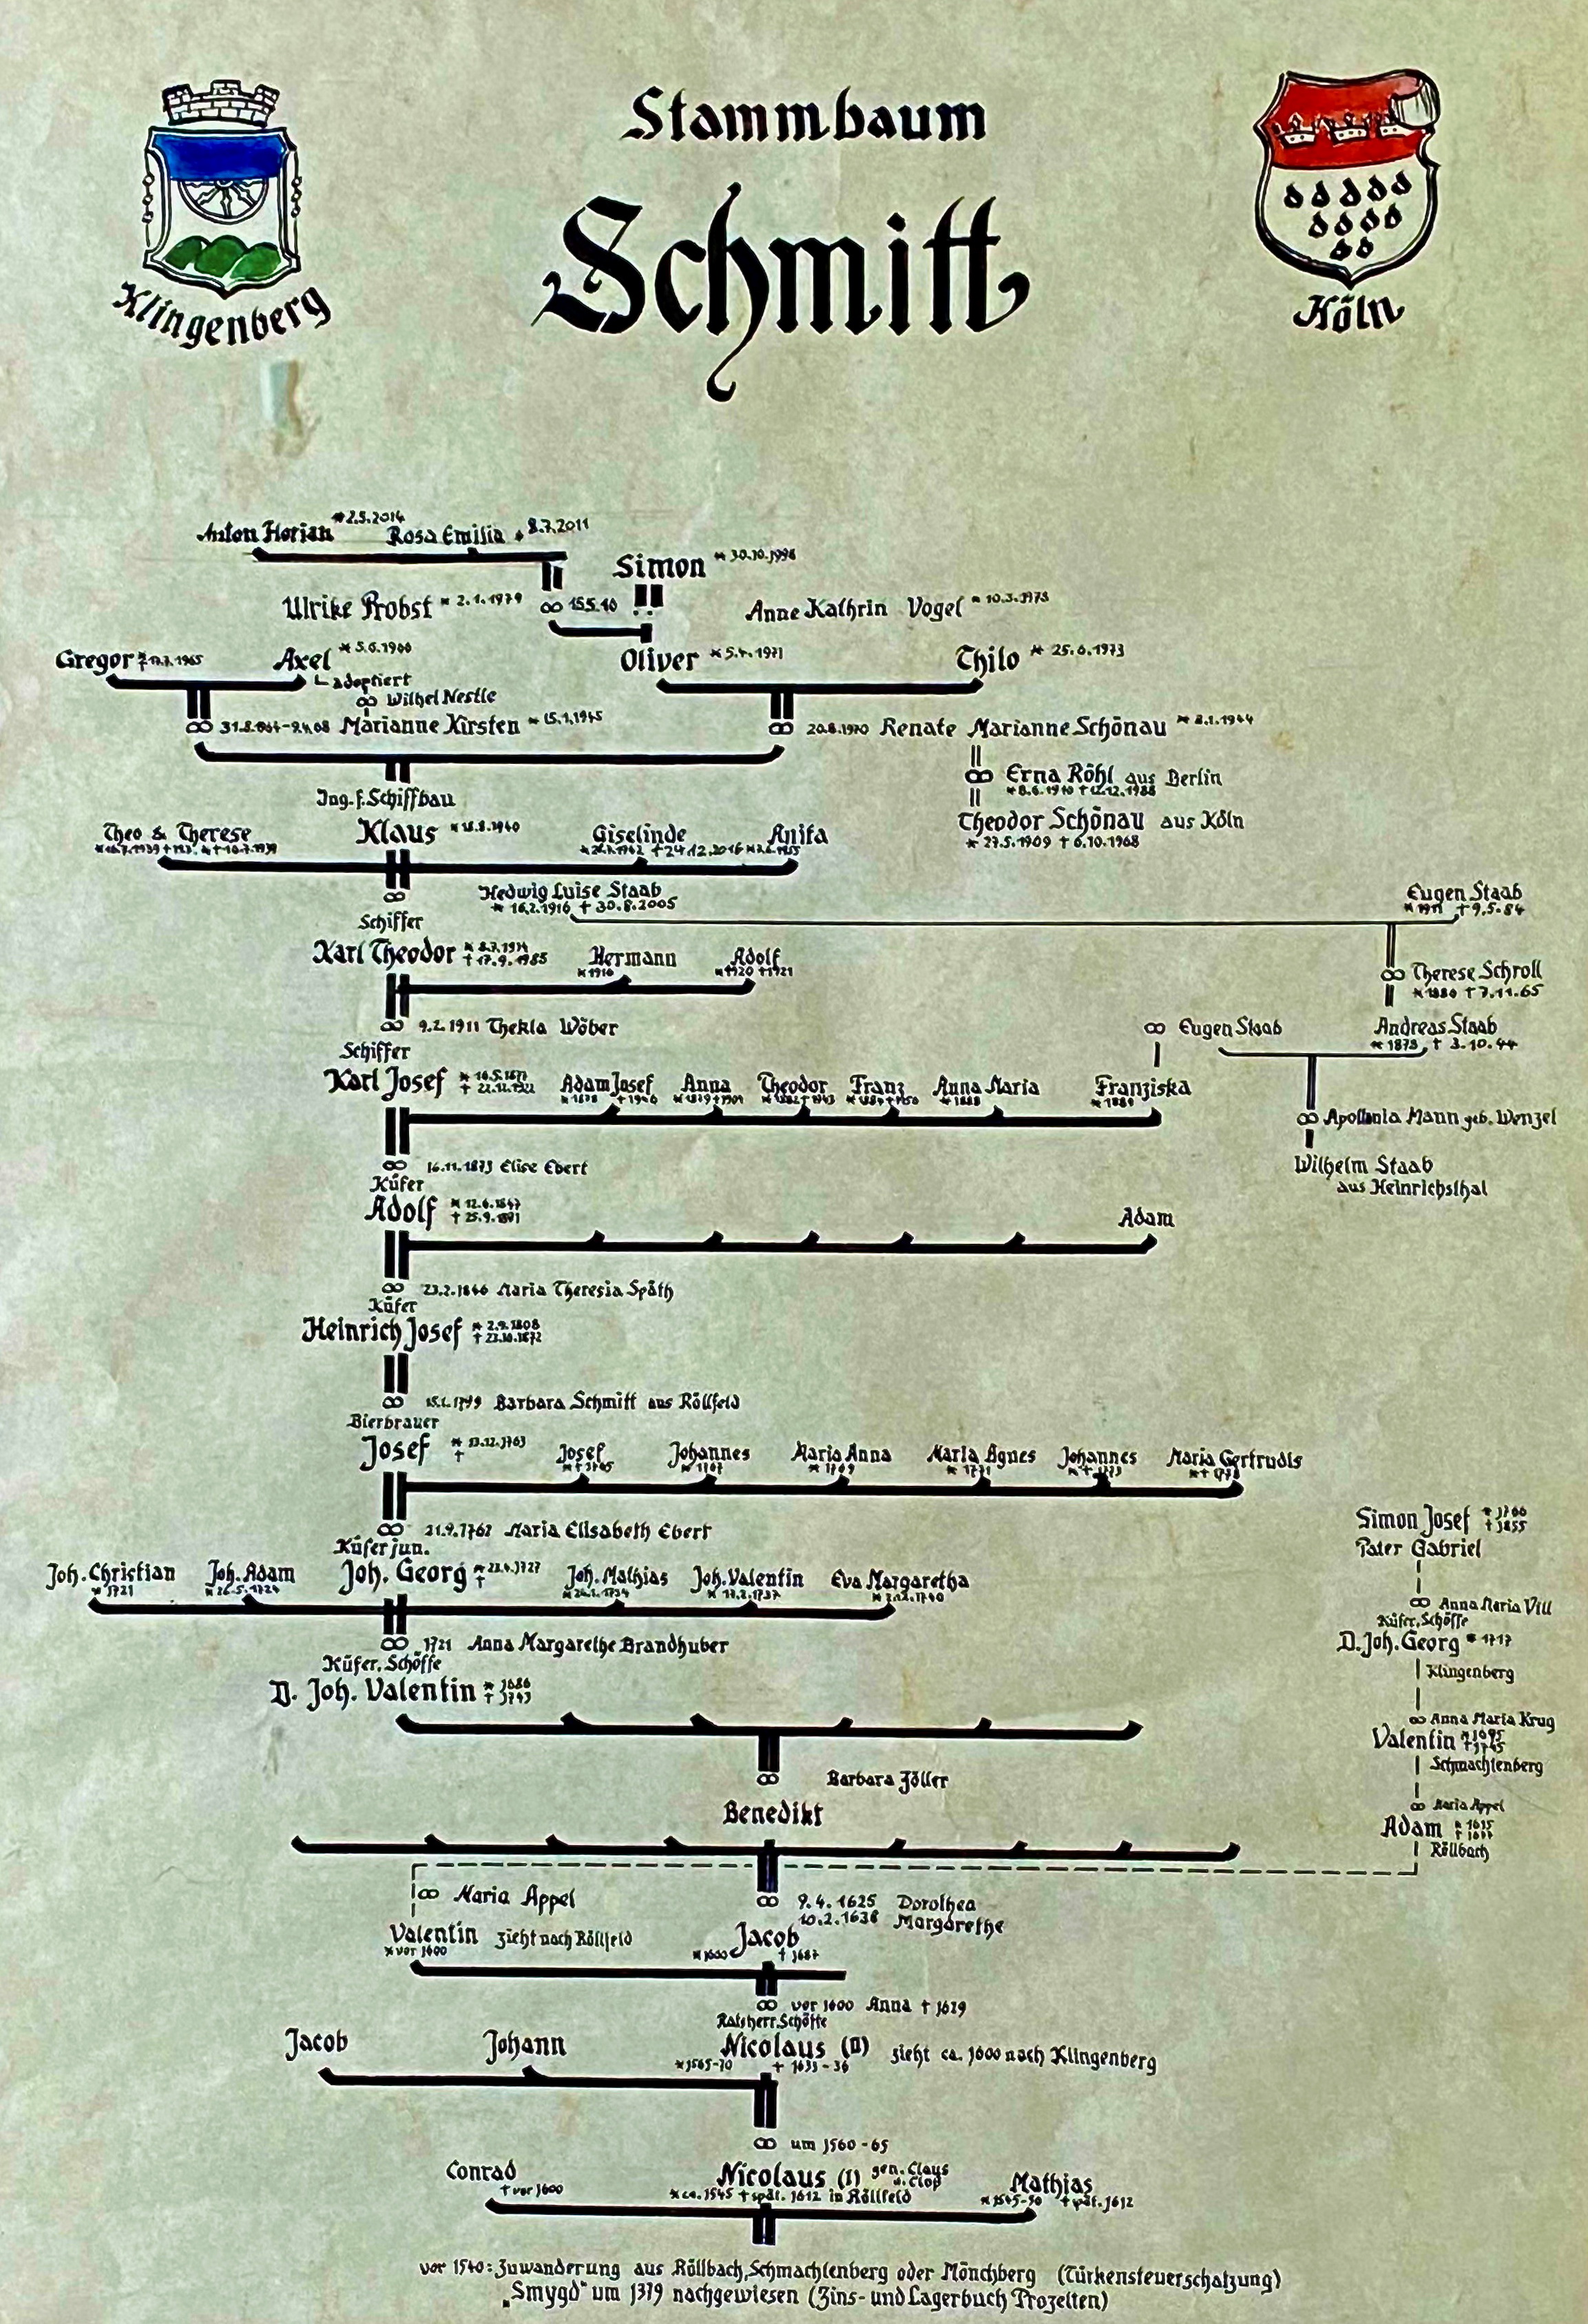 Stammbaum
Schmitt
Klingenberg
Köln
Anton Florian *2.5.2014 Rosa Emilia 8.7.2011
Simon * 30.10.1998
Ulrike Probst * 2.1.1979 ∞ 15.5.10
Anne Kathrin Vogel * 10.3.1973
Gregor Axel * 5.6.1966
adoptiert
Oliver * 5.4.1971 Thilo * 25.6.1973
∞ Wilhel Nestle
∞ Marianne Kirsten * 15.1.1945
∞ 20.8.1970 Renate Marianne Schönau * 8.1.1944
∞ Erna Röhl aus Berlin
* 8.6.1910 † 12.12.1988
Theodor Schönau aus Köln
* 27.5.1909 † 6.10.1968
Ing. f. Schiffbau
Theo & Therese Klaus * 18.8.1940 Giselinde Anita
† 24.12.2016
∞ Hedwig Luise Staab
* 16.2.1916 † 30.8.2005
Eugen Staab
* 1911 † 9.5.84
Schiffer
Karl Theodor * 8.7.1914 † 17.9.1985 Hermann Adolf
* 1916 * 1920 † 1921
∞ Therese Schroll
* 1880 † 7.11.65
∞ 9.2.1911 Thekla Wöber
∞ Eugen Staab Andreas Staab
* 1873 † 3.10.44
Schiffer
Karl Josef Adam Josef Anna Theodor Franz Anna Maria Franziska
* 1878 † 1946 * 1879 † 1901 * 1882 † 1943 * 1888 * 1889
∞ Apollonia Mann geb. Wenzel
Wilhelm Staab
aus Heinrichsthal
∞ 16.11.1873 Elise Ebert
Küfer
Adolf * 12.6.1847 † 25.9.1891
Adam
∞ 23.2.1846 Maria Theresia Späth
Küfer
Heinrich Josef * 2.9.1808 † 23.10.1872
∞ Barbara Schmitt aus Röllfeld
Bierbrauer
Josef * 13.12.1763 † Josef Johannes Maria Anna Maria Agnes Johannes Maria Gertrudis
* † 1765 * 1767 * 1769 * 1771 * † 1773
∞ 21.9.1762 Maria Elisabeth Ebert
Küfer jun.
Joh. Christian Joh. Adam Joh. Georg * 22.4.1727 † Joh. Mathias Joh. Valentin Eva Margaretha
* 1721 * 26.5.1724 * 24.2.1734 * 17.2.1737 * 2.12.1740
∞ 1721 Anna Margarethe Brandhuber
Küfer, Schöffe
D. Joh. Valentin * 1686 † 1743
Simon Josef * 1766 † 1855
Pater Gabriel
∞ Anna Maria Vill
Küfer, Schöffe
D. Joh. Georg * 1717
Klingenberg
∞ Anna Maria Krug
Valentin * 1695 † 1745
Schmachtenberg
∞ Maria Appel
Adam
Röllbach
∞ Barbara Zöller
Benedikt
∞ Maria Appel
∞ 9.4.1625 Dorothea
10.2.1638 Margarethe
Valentin zieht nach Röllfeld
* vor 1600
Jacob
* 1600 † 1687
∞ vor 1600 Anna † 1629
Ratsherr, Schöffe
Jacob Johann Nicolaus (II) zieht ca. 1600 nach Klingenberg
* 1565-70 † 1635-36
∞ um 1560-65
Conrad † vor 1600
Nicolaus (I) gen. Claus u. Clos
* ca. 1545 † spät. 1612 in Röllfeld
Mathias
* 1545-50 † spät. 1612
vor 1540: Zuwanderung aus Röllbach, Schmachtenberg oder Mönchberg (Türkensteuerschatzung)
„Smygd" um 1379 nachgewiesen (Zins- und Lagerbuch Prozelten)